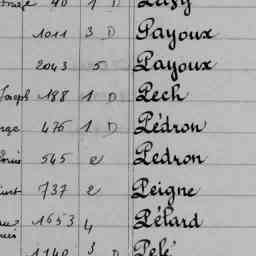 40 1 D
1011 3 D Payoux
2043 5 Payoux
Joseph 188 1 D Pech
476 1 D Pédron
545 2 Pedron
737 2 Peigne
1653 4 Pélard
1140 3 D Pelé